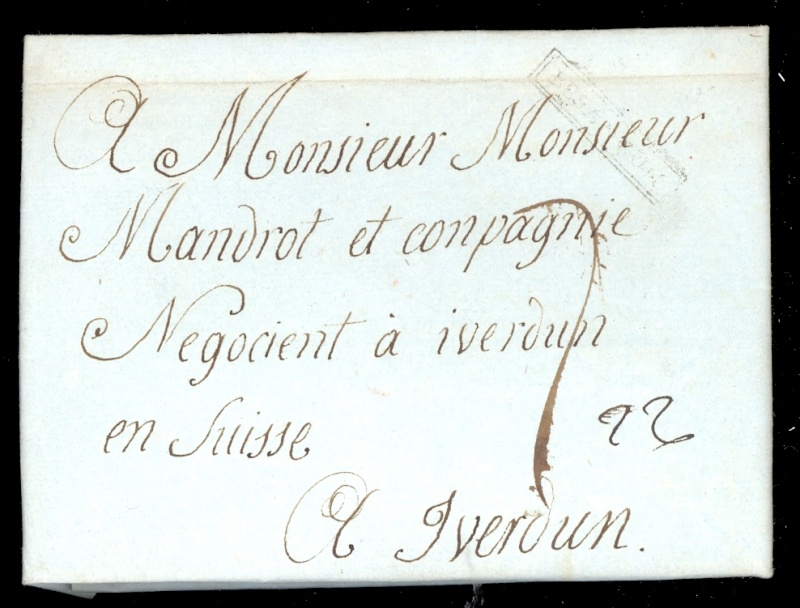 A Monsieur Monsieur
Mandrot et conpagnie
Negocient à iverdun
en Suisse
22
A Iverdun.